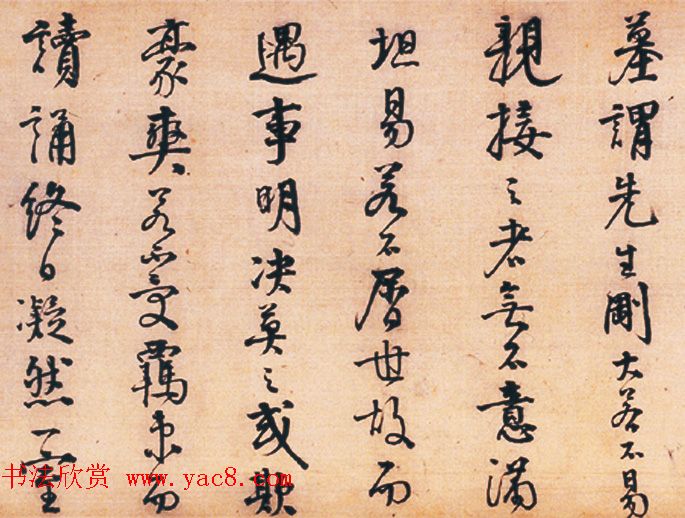 墓謂先生剛大若不易
親接之者無不意滿
坦易若不曆世故而
遇事明决莫之或欺
豪爽若不受羈束而
讀誦終日凝然一室
书法欣赏 www.yac8.com